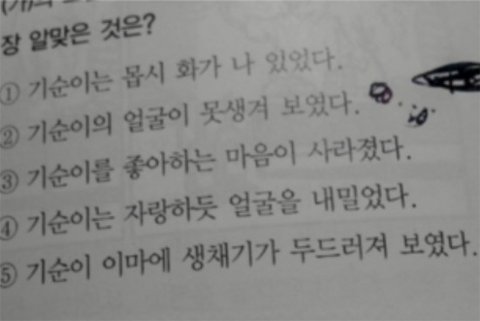 장 알맞은 것은?
① 기순이는 몹시 화가 나 있었다.
② 기순이의 얼굴이 못생겨 보였다.
③ 기순이를 좋아하는 마음이 사라졌다.
④ 기순이는 자랑하듯 얼굴을 내밀었다.
⑤ 기순이 이마에 생채기가 두드러져 보였다.